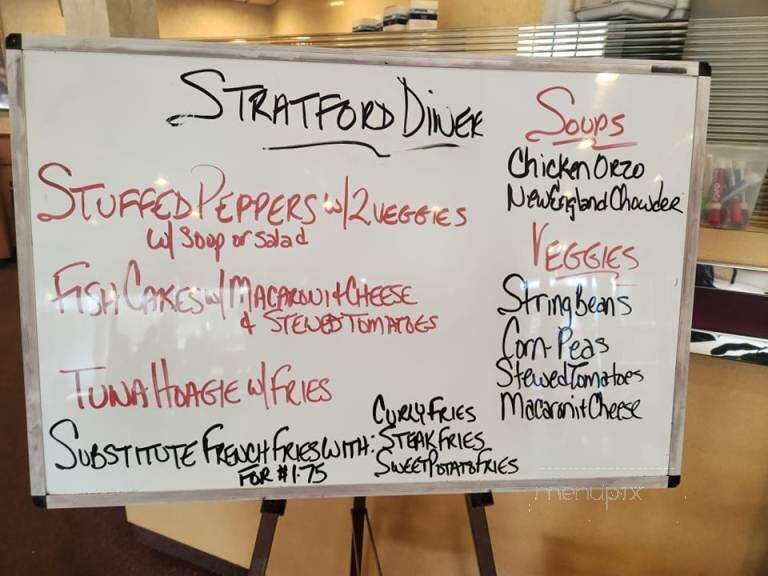 STRATFORD DINER
STUFFED PEPPERS w/ 2 VEGGIES
w/ Soup or Salad
FISH CAKES w/ MACARONI + CHEESE
& STEWED TOMATOES
TUNA HOAGIE w/ FRIES
SUBSTITUTE FRENCH FRIES WITH:
FOR $1.75
CURLY FRIES
STEAK FRIES
SWEET POTATO FRIES
SOUPS
Chicken ORZO
New England Chowder
VEGGIES
String Beans
Corn-Peas
Stewed Tomatoes
Macaroni + Cheese
menupix